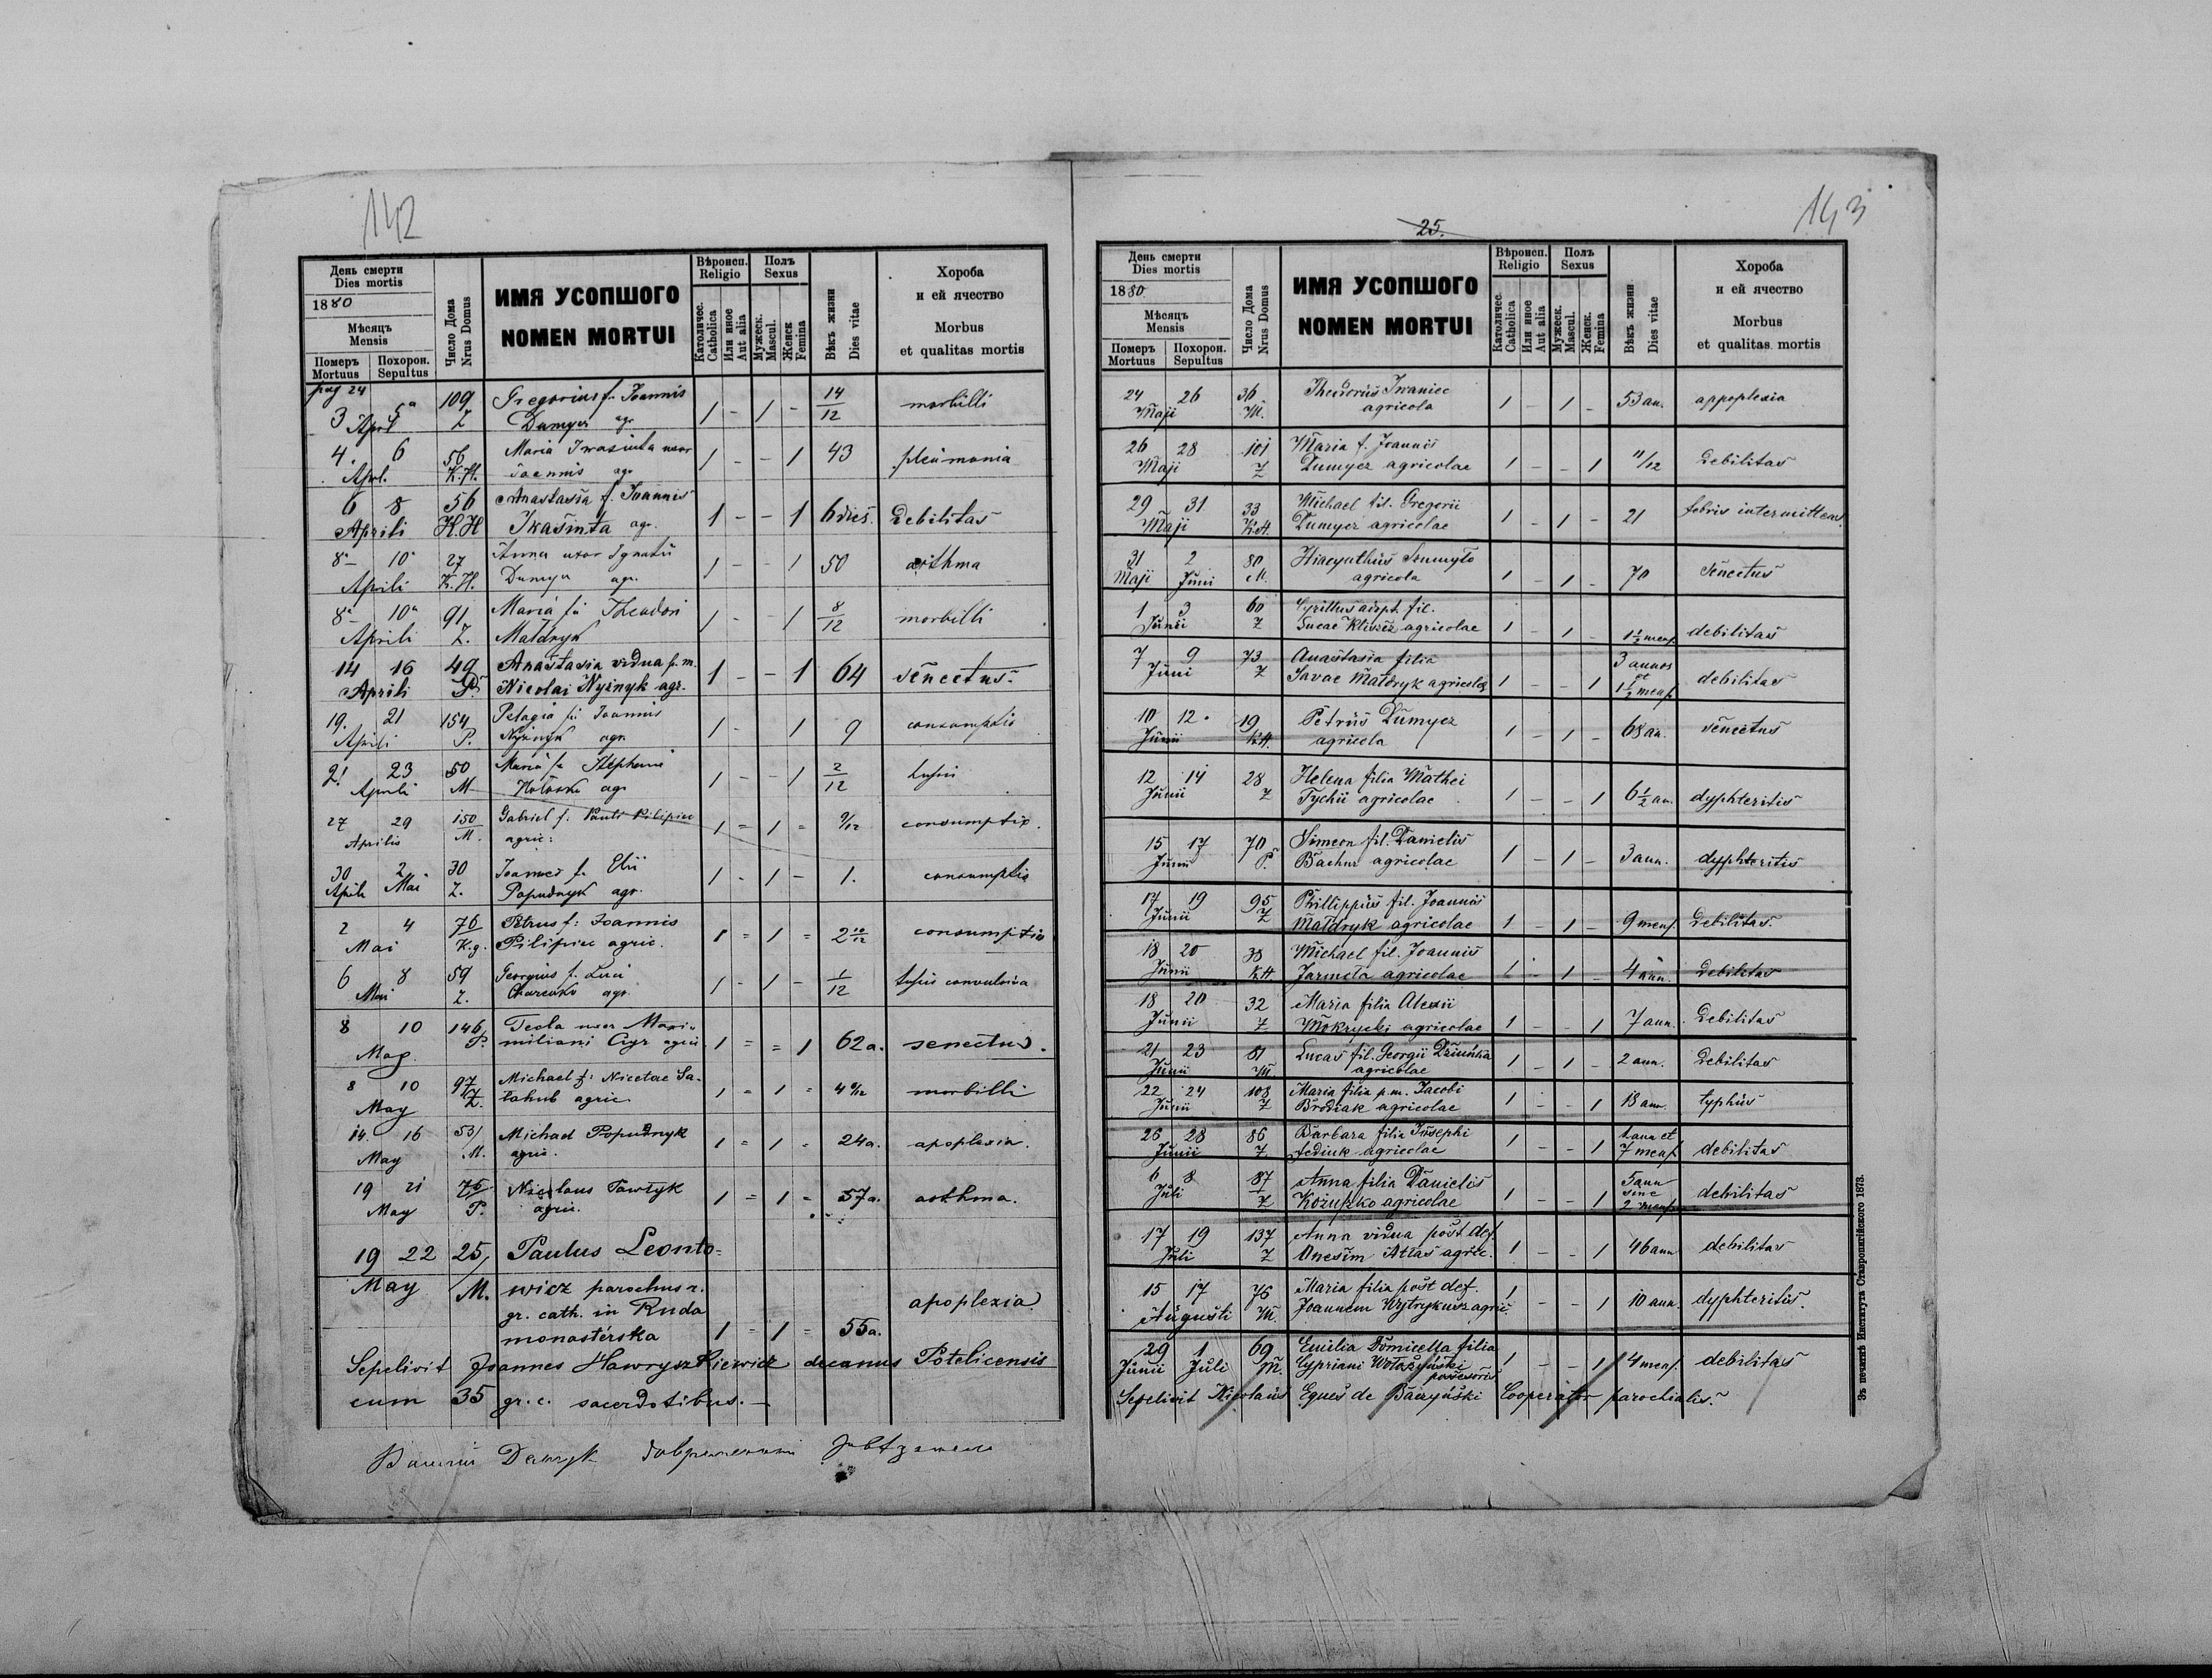 142
День смерти
Dies mortis
1880
Мѣсяцъ
Mensis
Померъ Похорон.
Mortuus Sepultus
Число Дома
Nrus Domus
ИМЯ УСОПШОГО
NOMEN MORTUI
Вѣроисп.
Religio
Католичес.
Catholica
Или иное
Aut alia
Полъ
Sexus
Мужеск.
Mascul.
Женск
Femina
Вѣкъ жизни
Dies vitae
Хороба
и ей ячество
Morbus
et qualitas mortis
pag 24
3 5 109 Gregorius f. Joannis 1 - 1 - 14/12 morbilli
April Z Dumycz agr
4. 6 56 Maria Iwasiuta uxor 1 - - 1 43 pleumonia
Apl. K.H. Joannis agr
6 8 56 Anastasia f. Joannis 1 - - 1 6 dies. Debilitas
Aprili K.H Iwasiuta agr.
8 10 27 Anna uxor Ignatii 1 - - 1 50 asthma
Aprili K.H. Dumycz agr.
8 10 91 Maria fi Theodori 1 - - 1 8/12 morbilli
Aprili Z. Maldryk
14 16 49 Anastasia vidua p.m. 1 - - 1 64 senectus
Aprili P. Nicolai Nyżnyk agr.
19. 21 154 Pelagia fi Joannis 1 - 1 9 consumptio
Aprili P. Nyżnyk agr.
21 23 50 Maria fi Stephani 1 - - 1 2/12 tussis
Aprili M agr
27 29 150 Gabriel f: Pauli Pilipiec 1 = 1 = 9/12 consumptio.
Aprilis M. agric:
30 2 30 Joannes f. Elii 1 - 1 - 1. consumptio
Aprili Mai Z. Popudnyk agr.
2 4 76 Petrus f: Joannis 1 = 1 = 2 10/12 consumptio
Mai K.g. Pilipiec agric.
6 8 59 Georgius f. Luci 1 - 1 - 1/12 tussis convulsiva
Mai Z. agr.
8 10 146 Tecla uxor Maxi- 1 = = 1 62a. senectus.
May P. miliani Cyr agric
8 10 97 Michael f: Nicetae Sa- 1 = 1 = 4 9/12 morbilli
May Z. lahub agric.
14. 16 53/ Michael Popudnyk 1 = 1 - 24a. apoplexia.
May M. agric.
19 21 75 Nicolaus Pawlyk 1 = 1 = 57a. asthma.
May P. agric.
19 22 25/ Paulus Leonto=
May M. wicz parochus r.
gr. cath. in Ruda apoplexia
monastérska 1 = 1 = 55a.
Sepelivit Joannes Hawryszkiewicz decanus Potelicensis
cum 35 gr. c. sacerdotibus.
143
25.
День смерти
Dies mortis
1880.
Мѣсяцъ
Mensis
Померъ Похорон.
Mortuus Sepultus
Число Дома
Nrus Domus
ИМЯ УСОПШОГО
NOMEN MORTUI
Вѣроисп.
Religio
Католичес.
Catholica
Или иное
Aut alia
Полъ
Sexus
Мужеск.
Mascul.
Женск.
Femina
Вѣкъ жизни
Dies vitae
Хороба
и ей ячество
Morbus
et qualitas mortis
24 26 36 Theodorus Iwaniec 1 - 1 - 53 an. appoplexia
Maji M. agricola
26 28 101 Maria f. Joannis 1 - - 1 11/12 Debilitas
Maji Z Dumycz agricolae
29 31 33 Michael fil. Gregorii 1 - 1 - 21 febris intermittens.
Maji K.H. Dumycz agricolae
31 2 80 Hiacynthus Szumylo 1 - 1 - 70 Senectus
Maji Juni M. agricola
1 3 60 Cyrillus adopt. fil. 1 - 1 - 1 1/2 mens. debilitas
Junii Z Lucae agricolae
7 9 73 Anastasia filia 1 - - 1 3 annos et 1 1/2 mens. debilitas
Juni Z Savae Maldryk agricolae
10 12 19 Petrus Dumycz 1 - 1 - 68 an. senectus
Junii K.H. agricola
12 14 28 Helena filia Mathei 1 - - 1 6 1/2 an. dyphteritis
Junii Z Tychii agricolae
15 17 70 Simeon fil. Danielis 1 - 1 - 3 ann. dyphteritis
Junii P. Bachur agricolae
17 19 95 Phillippus fil. Joannis 1 - 1 - 9 mens. Debilitas.
Junii Z Maldryk agricolae
18 20 38 Michael fil. Joannis 1 - 1 - 4 ann. Debilitas
Junii K.H Jarmola agricolae
18 20 32 Maria filia Alexii 1 - - 1 7 ann. Debilitas
Junii Z Mokrycki agricolae
21 23 81 Lucas fil. Georgii Dziuńka 1 - 1 - 2 ann. Debilitas
Junii M agricolae
22 24 108 Maria filia p.m. Jacobi 1 - - 1 18 ann. typhus
Junii Z Brodiak agricolae
26 28 86 Barbara filia Josephi 1 - - 1 1 ann et 7 mens. debilitas
Junii Z. Fediuk agricolae
6 8 87 Anna filia Danielis 1 - - 1 5 ann sine 2 mens. debilitas
Juli Z Kożuszko agricolae
17 19 137 Anna vidua post def. 1 - - 1 46 ann debilitas
Juli Z Onesim Atlas agric.
15 17 76 Maria filia post def. 1 - - 1 10 ann. dyphteritis.
Augusti M. Joannem Wytrykusz agric.
29 1 69 Emilia Domicella filia 1 - - 1 4 mens. debilitas
Junii Juli M. Cypriani Wołoszyński
possesoris
Sepelivit Nicolaus Eques de Baczyński Cooperator parochialis.
Зъ печатнѣ Института Ставропигійского 1878.